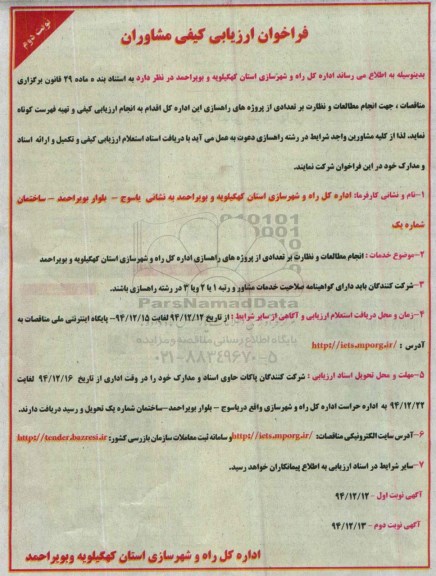 نوبت دوم
فراخوان ارزیابی کیفی مشاوران
بدینوسیله به اطلاع می رساند اداره کل راه و شهرسازی استان کهگیلویه و بویراحمد در نظر دارد به استناد بند ه ماده ۲۹ قانون برگزاری
مناقصات ، جهت انجام مطالعات و نظارت بر تعدادی از پروژه های راهسازی این اداره کل اقدام به انجام ارزیابی کیفی و تهیه فهرست کوتاه
نماید. لذا از کلیه مشاورین واجد شرایط در رشته راهسازی دعوت به عمل می آید با دریافت اسناد استعلام ارزیابی کیفی و تکمیل و ارائه اسناد
و مدارک خود در این فراخوان شرکت نمایند.
۱-نام و نشانی کارفرما: اداره کل راه و شهرسازی استان کهگیلویه و بویراحمد به نشانی یاسوج - بلوار بویراحمد - ساختمان
شماره یک
۲-موضوع خدمات : انجام مطالعات و نظارت بر تعدادی از پروژه های راهسازی اداره کل راه و شهرسازی استان کهگیلویه و بویراحمد
۳-شرکت کنندگان باید دارای گواهینامه صلاحیت خدمات مشاور و رتبه ۱ یا ۲ ویا ۳ در رشته راهسازی باشند.
ParsNamadData
۴-زمان و محل دریافت استعلام ارزیابی و آگاهی از سایر شرایط : از تاریخ ۹۴/۱۲/۱۲ لغایت ۹۴/۱۲/۱۵- پایگاه اینترنتی ملی مناقصات به
پایگاه اطلاع رسانی مناقصه و مزایده
آدرس : http://iets.mporg.ir/
۰۲۱-۸۸۳۴۹۶۷۰-۵
۵-مهلت و محل تحویل اسناد ارزیابی : شرکت کنندگان پاکات حاوی اسناد و مدارک خود را در وقت اداری از تاریخ ۹۴/۱۲/۱۶ لغایت
۹۴/۱۲/۲۲ به اداره حراست اداره کل راه و شهرسازی واقع دریاسوج - بلوار بویراحمد-ساختمان شماره یک تحویل و رسید دریافت دارند.
۶-آدرس سایت الکترونیکی مناقصات: http://iets.mporg.ir/ و سامانه ثبت معاملات سازمان بازرسی کشور: http://tender.bazresi.ir
۷-سایر شرایط در اسناد ارزیابی به اطلاع پیمانکاران خواهد رسید.
آگهی نوبت اول - ۹۴/۱۲/۱۲
آگهی نوبت دوم - ۹۴/۱۲/۱۳
اداره کل راه و شهرسازی استان کهگیلویه وبویراحمد